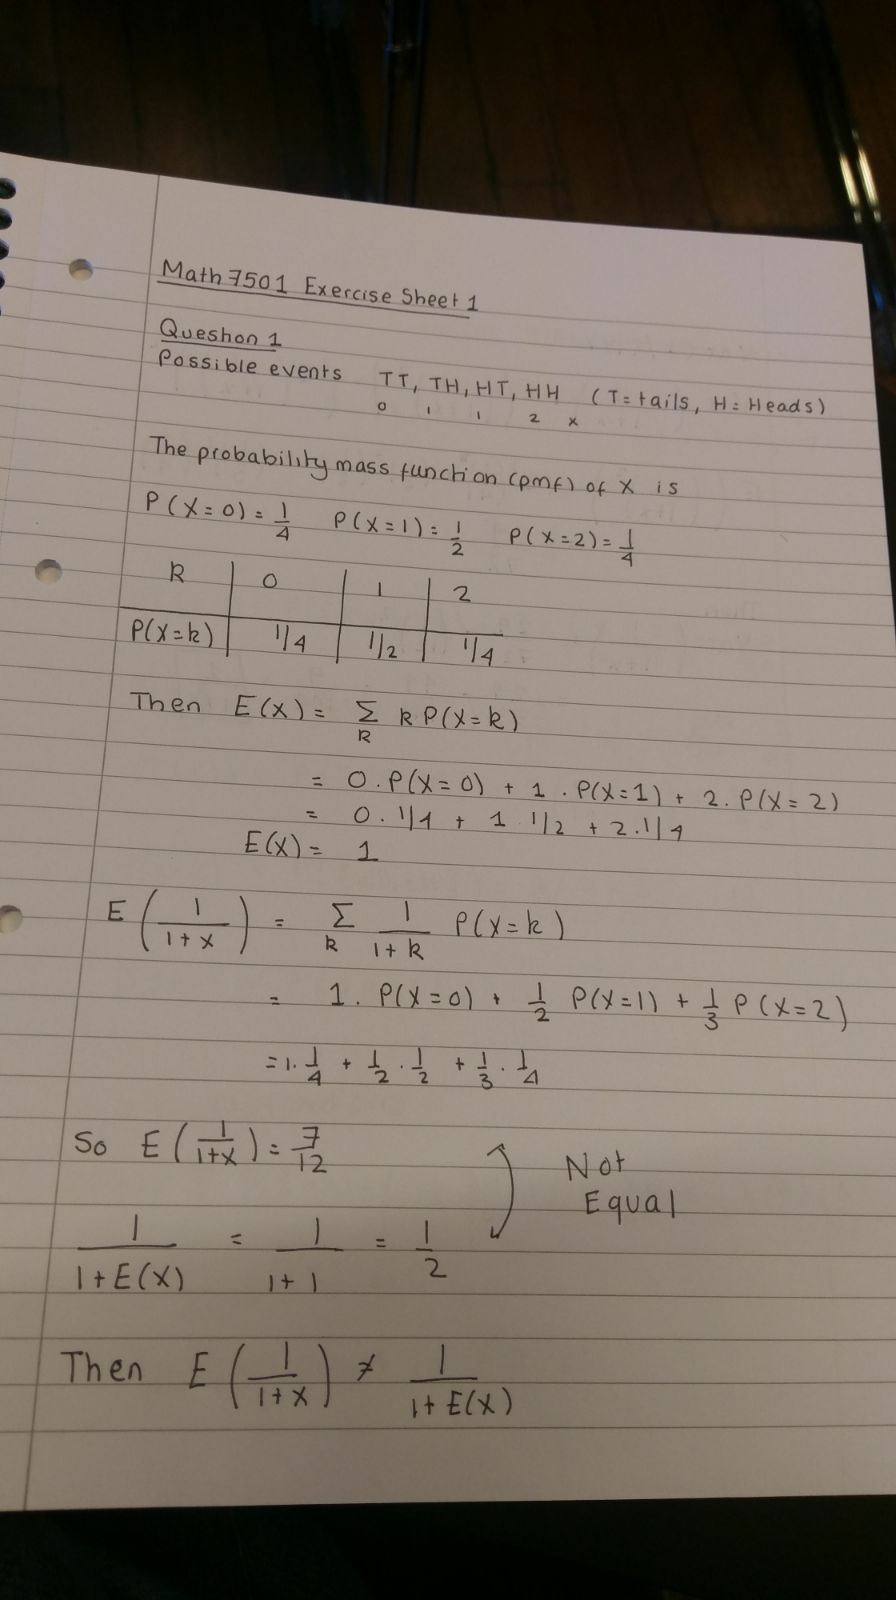 Math 7501 Exercise Sheet 1
Question 1
Possible events TT, TH, HT, HH (T = tails, H = Heads)
0 1 1 2 x
The probability mass function (pmf) of X is
P(X=0) = 1/4 P(X=1) = 1/2 P(X=2) = 1/4
k 0 1 2
P(X=k) 1/4 1/2 1/4
Then E(X) = Σ_k k P(X=k)
= 0.P(X=0) + 1.P(X=1) + 2.P(X=2)
= 0.1/4 + 1.1/2 + 2.1/4
E(X) = 1
E(1/(1+X)) = Σ_k 1/(1+k) P(X=k)
= 1. P(X=0) + 1/2 P(X=1) + 1/3 P(X=2)
= 1.1/4 + 1/2.1/2 + 1/3.1/4
So E(1/(1+X)) = 7/12
Not
Equal
1/(1+E(X)) = 1/(1+1) = 1/2
Then E(1/(1+X)) ≠ 1/(1+E(X))